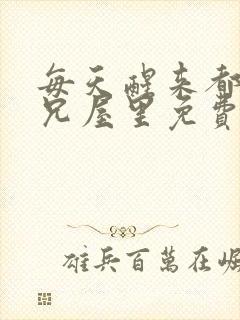 每天醒来都
兄屋里免費
雄兵百萬在崛